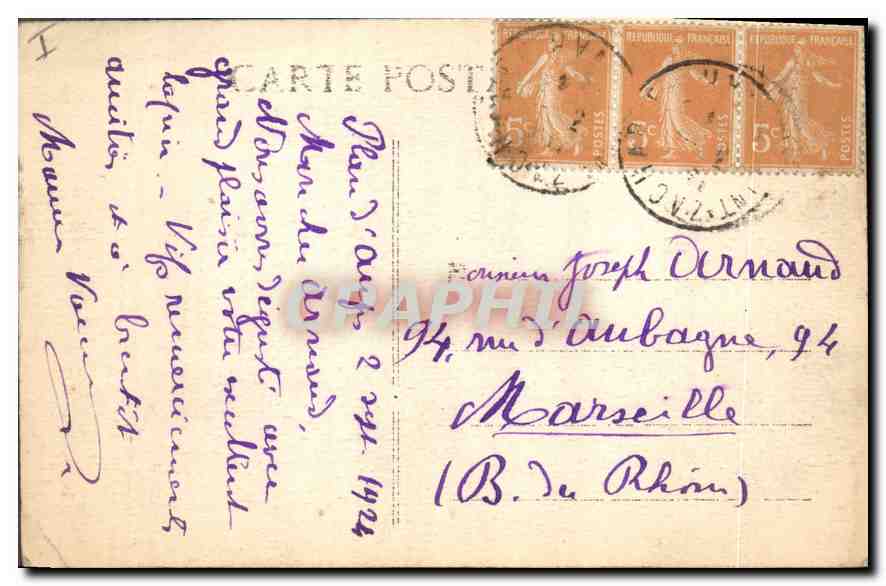 CARTE POSTA
Plan d'aups 2 sept. 1924
Mon cher Arnaud,
Nous avons dégusté avec
grand plaisir votre excellent
lapin. - Vifs remerciements,
amitiés et à bientôt
REPUBLIQUE FRANÇAISE
5c
POSTES
REPUBLIQUE FRANÇAISE
5c
POSTES
REPUBLIQUE FRANÇAISE
5c
POSTES
VAR
Monsieur Joseph Arnaud
94, rue d'Aubagne, 94
Marseille
(B. du Rhône)
CPAPHIL